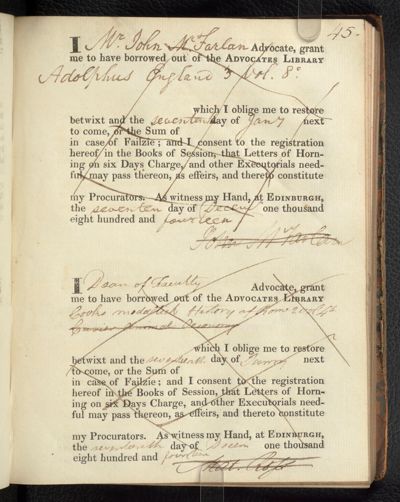 45.
I Mr. John McFarlan Advocate, grant
me to have borrowed out of the ADVOCATES LIBRARY
Adolphus England 3 Vol. 8o
which I oblige me to restore
betwixt and the seventeen day of Jany next
to come, or the Sum of
in case of Failzie; and I consent to the registration
hereof in the Books of Session, that Letters of Horn-
ing on six Days Charge, and other Executorials need-
ful, may pass thereon, as effeirs, and thereto constitute
my Procurators. As witness my Hand, at EDINBURGH,
the seventeen day of Decemr one thousand
eight hundred and fourteen
John McFarlan
I Dean of Faculty Advocate, grant
me to have borrowed out of the ADVOCATES LIBRARY
Hooke History of Rome
which I oblige me to restore
betwixt and the seventeenth day of next
to come, or the Sum of
in case of Failzie; and I consent to the registration
hereof in the Books of Session, that Letters of Horn-
ing on six Days Charge, and other Executorials need-
ful may pass thereon, as effeirs, and thereto constitute
my Procurators. As witness my Hand, at EDINBURGH,
the seventeenth day of Decem one thousand
eight hundred and fourteen